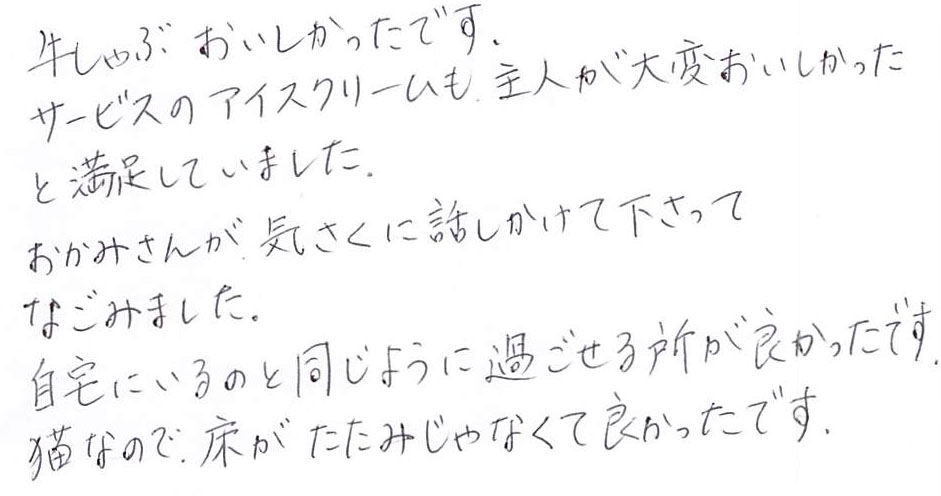 牛しゃぶ おいしかったです.
サービスのアイスクリームも、主人が大変おいしかった
と満足していました.
おかみさんが、気さくに話しかけて下さって
なごみました.
自宅にいるのと同じように過ごせる所が良かったです.
猫なので、床がたたみじゃなくて良かったです.